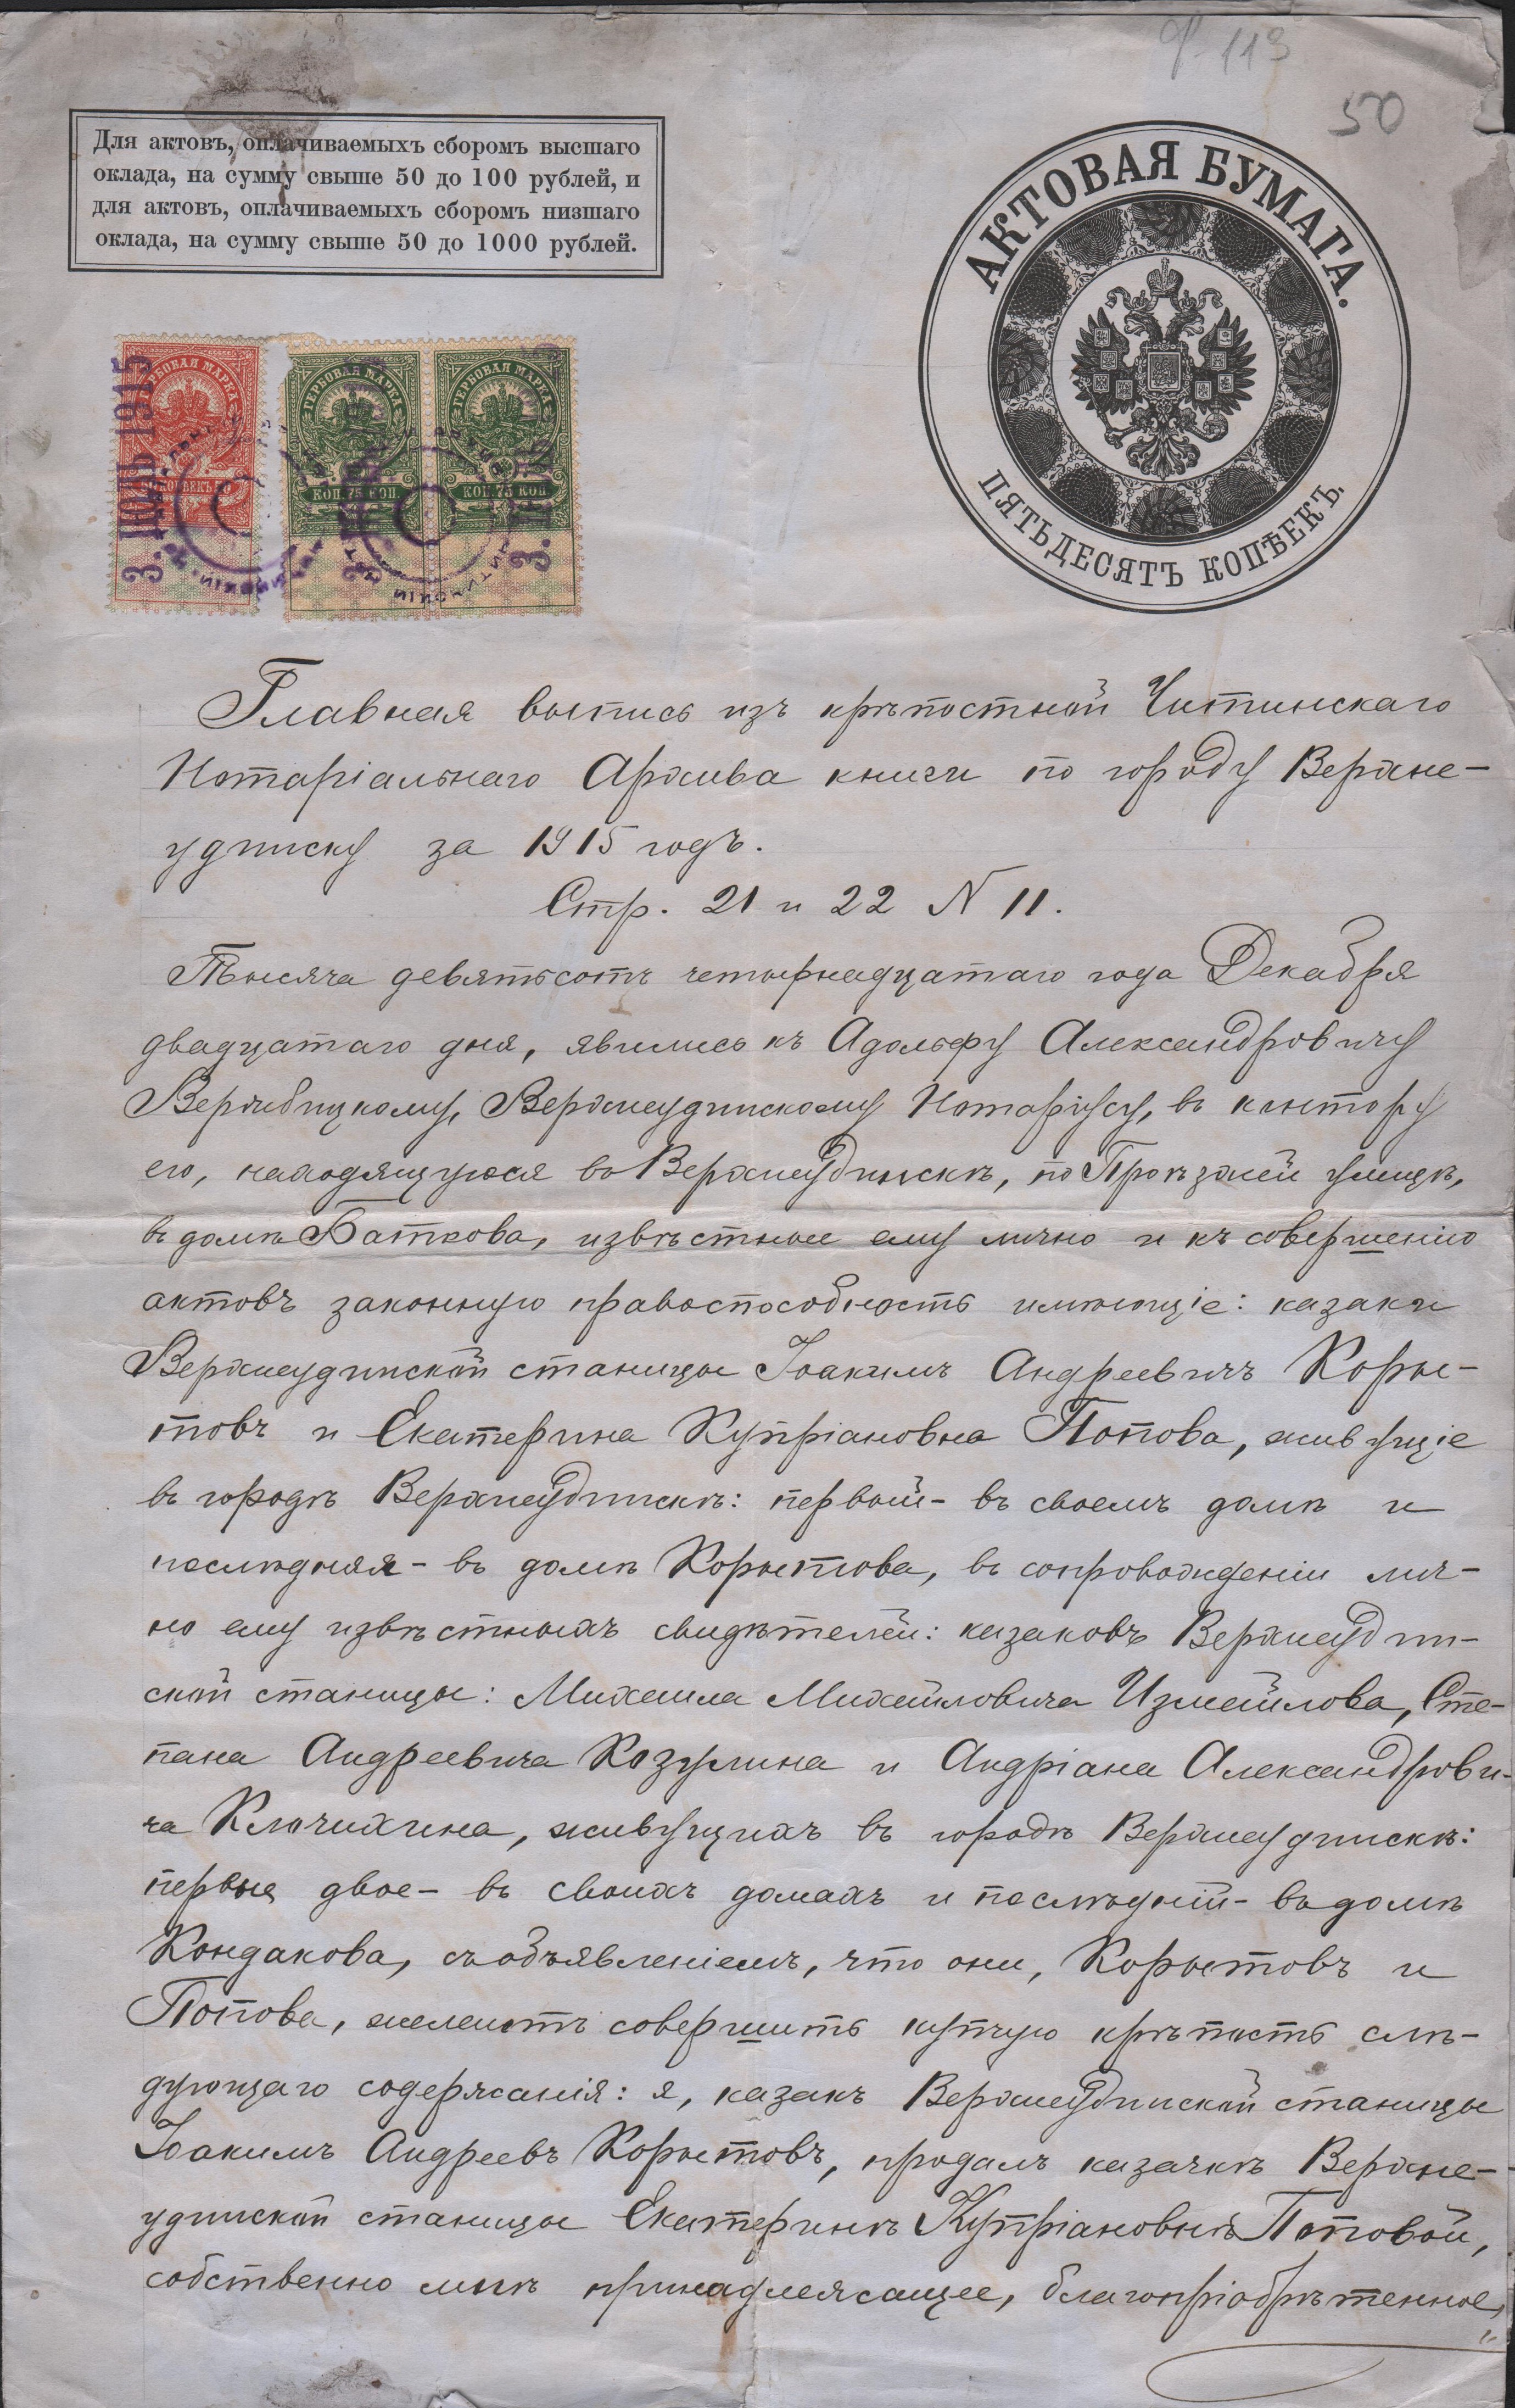 ф 113
50
Для актовъ, оплачиваемыхъ сборомъ высшаго
оклада, на сумму свыше 50 до 100 рублей, и
для актовъ, оплачиваемыхъ сборомъ низшаго
оклада, на сумму свыше 50 до 1000 рублей.
АКТОВАЯ БУМАГА.
ПЯТЬДЕСЯТЪ КОПѢЕКЪ.
ГЕРБОВАЯ МАРКА
ГЕРБОВАЯ МАРКА
ГЕРБОВАЯ МАРКА
КОП. 75 КОП.
КОП. 75 КОП.
3. ІЮЛЬ 1915
Главная выпись изъ крѣпостной Читинскаго
Нотаріальнаго Архива книги по городу Верхне-
удинску за 1915 годъ.
Стр. 21 и 22 N 11.
Тысяча девятьсотъ четырнадцатаго года Декабря
двадцатаго дня, явились къ Адольфу Александровичу
Вержбицкому, Верхнеудинскому Нотаріусу, въ контору
его, находящуюся въ Верхнеудинскѣ, по Проѣзжей улицѣ,
въ домѣ Баткова, извѣстные ему лично и къ совершенію
актовъ законную правоспособность имѣющіе: казаки
Верхнеудинской станицы Іоакимъ Андреевичъ Коры-
товъ и Екатерина Купріановна Попова, живущіе
въ городѣ Верхнеудинскѣ: первый - въ своемъ домѣ и
послѣдняя - въ домѣ Корытова, въ сопровожденіи лич-
но ему извѣстныхъ свидѣтелей: казаковъ Верхнеудин-
ской станицы: Михаила Михайловича Измайлова, Сте-
пана Андреевича Козулина и Андріана Александрови-
ча Ключихина, живущихъ въ городѣ Верхнеудинскѣ:
первые двое - въ своихъ домахъ и послѣдній - въ домѣ
Кондакова, съ объявленіемъ, что они, Корытовъ и
Попова, желаютъ совершить купчую крѣпость слѣ-
дующаго содержанія: я, казакъ Верхнеудинской станицы
Іоакимъ Андреевъ Корытовъ, продалъ казачкѣ Верхне-
удинской станицы Екатеринѣ Купріановнѣ Поповой,
собственно мнѣ принадлежащее, благопріобрѣтенное,